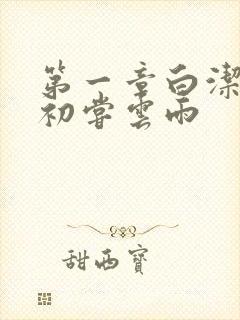 第一章白潔
初嘗雲雨
甜西寶